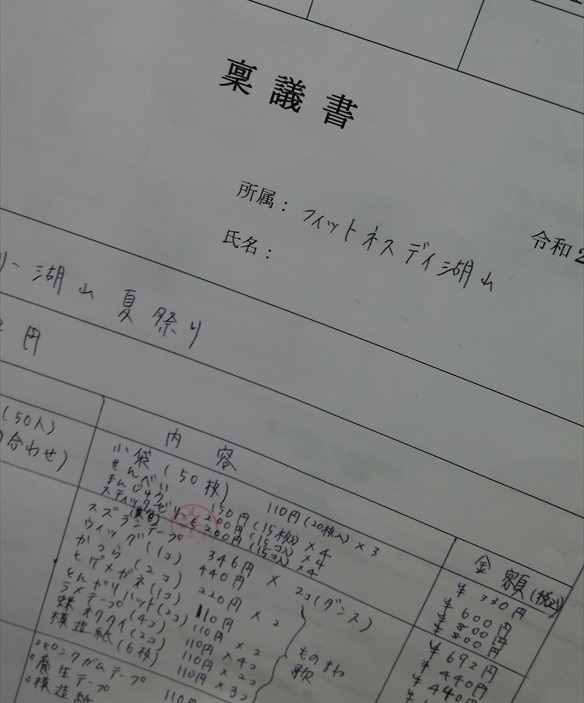 稟議書
所属：フィットネスデイ湖山
令和2
氏名：
湖山夏祭り
円
(50人)
合わせ)
内容
金額(税込)
小袋(50枚) 110円(20枚入)×3 ¥330円
せんべい 150円(15枚入)×4 ¥600円
まんじゅう 200円(15コ入)×4 ¥800円
スティックゼリー 200円(15コ入)×4 ¥800円
スズランテープ 346円×2コ(ダンス) ¥692円
ウィッグ(1コ) 440円 ¥440円
かつら(2コ) 220円×2 ¥440円
ヒゲメガネ(1コ) 110円
とんがりハット(2コ) 110円×2
ラメテープ(4コ) 110円×4コ
蝶ネクタイ(2コ) 110円×2コ
模造紙(6枚) 110円×3コ
ものまね
歌
養生テープ
模造紙